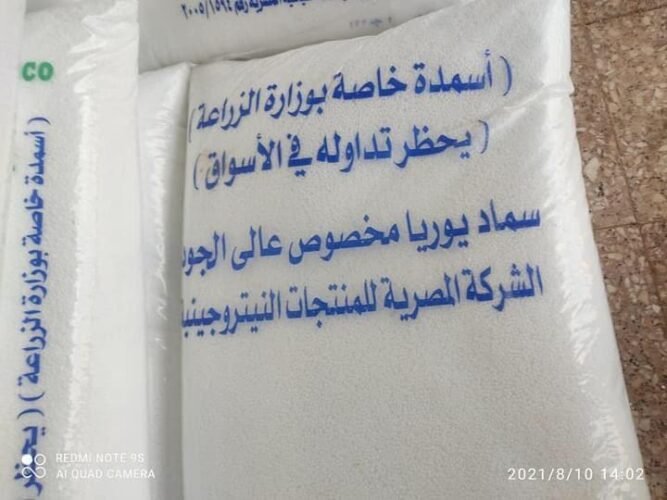 المصرية رقم ٢٠٠٥/١٥٩٤
CO
( أسمدة خاصة بوزارة الزراعة )
( يحظر تداوله في الأسواق )
سماد يوريا مخصوص عالى
الشركة المصرية للمنتجات
( أسمدة خاصة بوزارة الزراعة ) ( يحظر
REDMI NOTE 9S
AI QUAD CAMERA
2021/8/10 14:02